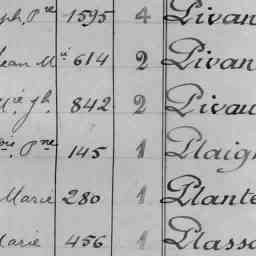 ph, Pre 1595 4 Pivan
ean Mie 614 2 Pivan
Mie Jh. 842 2 Pivau
is, Pne 145 1 Plaig
Marie 280 1 Plante
Marie 456 1 Plasso